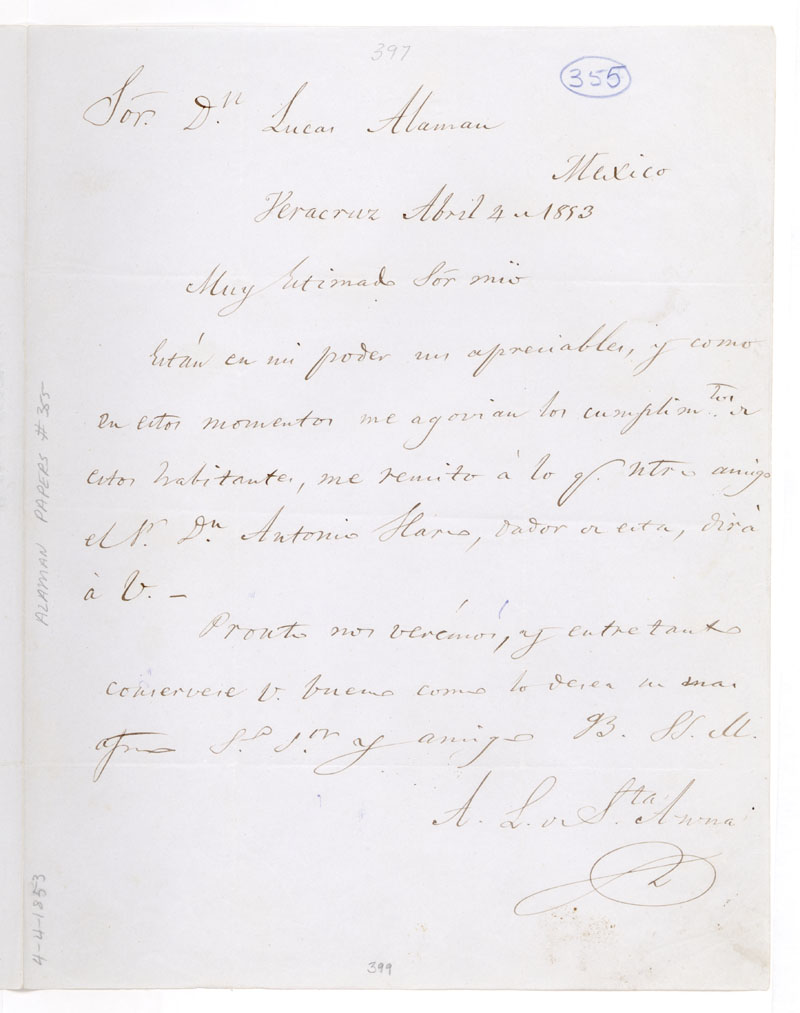 397
355
Sor. Dn. Lucas Alaman
Mexico
Veracruz Abril 4 de 1853
Muy Estimado Sor mio
Están en mi poder sus apreciables, y como
en estos momentos me agovian los cumplim.tos de
estos habitantes, me remito á lo q. ntro amigo
el Sr. Dn Antonio Haro, dador de esta, dirá
á V. —
Pronto nos verémos, y entretanto
conservese V. bueno como lo desea su mas
afmo S.S. S.or y amigo B. SS. M.
A. L. de S.ta Anna
ALAMAN PAPERS # 355
4-4-1853
399